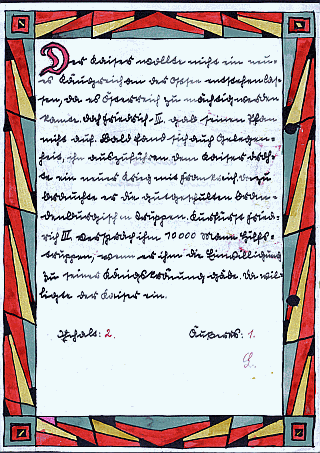 Der Kaiser wollte nicht ein neu-
es Königreich an der Ostsee entstehen las-
sen, da es Österreich zu mächtig werden
konnte. Doch Friedrich III. gab seinen Plan
nicht auf. Bald fand sich auch Gelegen-
heit, ihn auszuführen. Dem Kaiser droh-
te ein neuer Krieg mit Frankreich. Dazu
brauchte er die gutgeschulten bran-
denburgischen Truppen. Kurfürst Fried-
rich III. versprach ihm 10000 Mann Hilfs-
truppen, wenn er ihm die Einwilligung
zu seiner Königskrönung gäbe. Da wil-
ligte der Kaiser ein.
Inhalt: 2. Äußeres: 1.